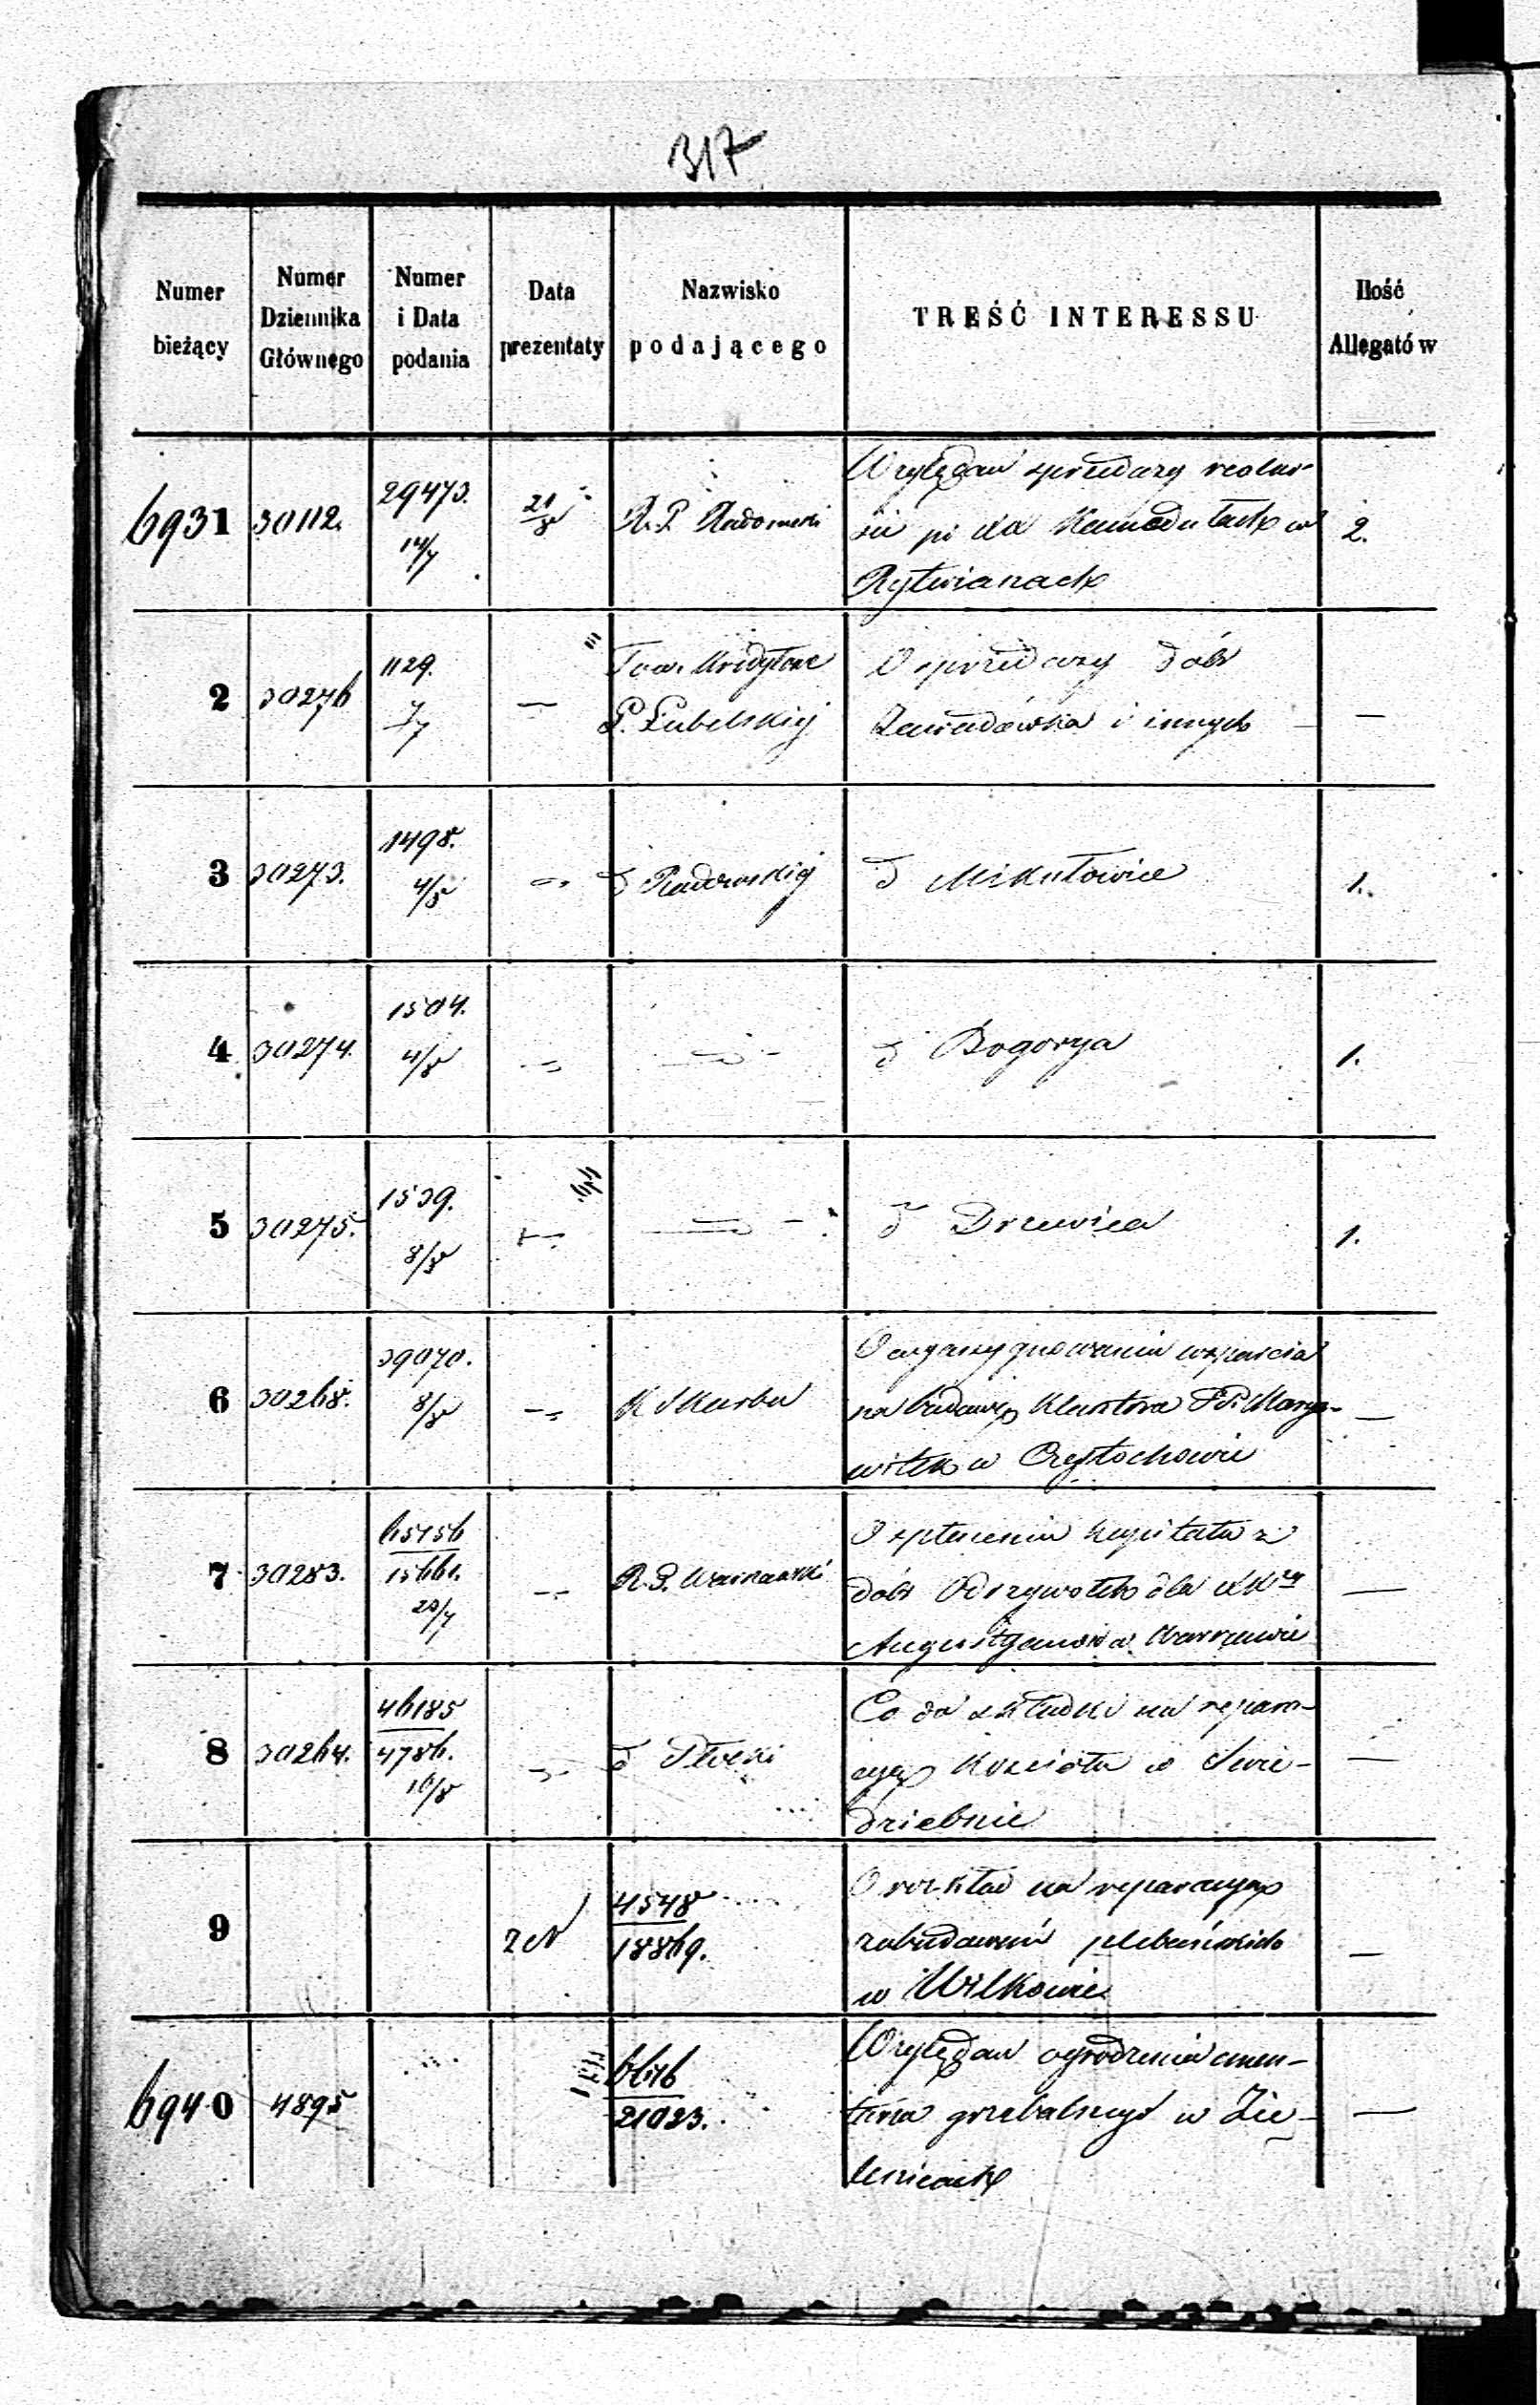 317
Numer bieżący
Numer Dziennika Głównego
Numer i Data podania
Data prezentaty
Nazwisko podającego
TREŚĆ INTERESSU
Ilość Allegatów
6931 30112. 29473. 14/7 21/8 R. P. Radomski
Względem sprzedaży realno-
ści po Kamedułach w
Rytwianach
2.
2 30276 1129. 7/7 — Tow. Kredytowe
G. Lubelskiej
O sprzedaży dóbr
Zawadówka i innych
—
3 30273. 1498. 4/8 — d Radomskiej
d Mikułowice
1.
4 30274. 1504. 4/8 — —
d Bogorya
1.
5 30275. 1539. 8/8 — —
d Drzewica
1.
6 30268. 39070. 8/8 — K Skarbu
O wyasygnowaniu wsparcia
na budowę Klasztora PP. Marya-
witek w Częstochowie
—
7 30283. 65156 15661. 20/7 — R. G. Warszawski
O spłaceniu kapitału z
dóbr Odrzywołek dla XX
Augustyanów w Warszawie
—
8 30264. 46185 4786. 16/8 — d Płocki
Co do składki na repara-
cyę Kościoła w Świe-
dziebnie
—
9 4548 18869.
O rozkład na reparacyę
zabudowań plebańskich
w Wilkowie
—
6940 4895 6646 21023.
Względem ogrodzenia cmen-
tarza grzebalnego w Zie-
lenicach
—